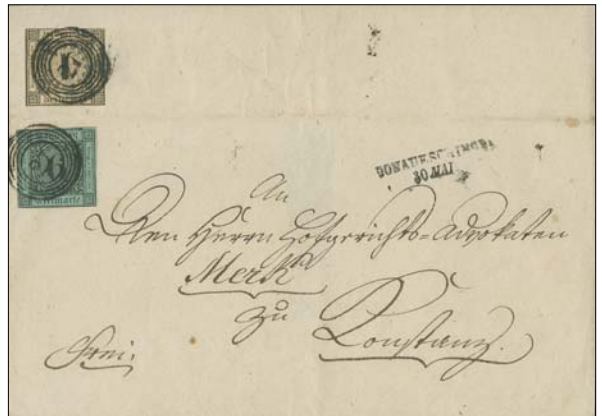 Freimarke
DONAUESCHINGEN
30 MAI
An
Den Herrn Hofgerichts=Advokaten
Merk
zu
Constanz.
Frei.